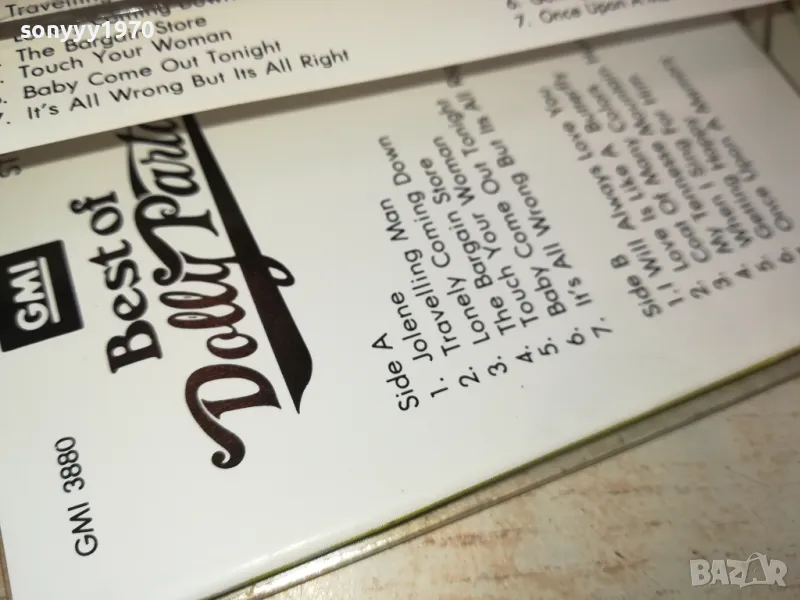 sonyyy1970
Travelling
The Bargain Store
Touch Your Woman
Baby Come Out Tonight
7. It's All Wrong But Its All Right
7. Once Upon A
GMI
Best of
Dolly Parto
GMI 3880
Side A
1. Jolene
2. Travelling Man
3. Lonely Coming Down
4. The Bargain Store
5. Touch Your Woman
6. Baby Come Out Tonight
7. It's All Wrong But Its All
Side B
1. I Will Always Love You
2. Love Is Like A Butterfly
3. Coat Of Many Colors
4. My Tennesse Mountain
5. When I Sing For Him
6. Getting Happy
Once Upon A Memory
BAZAR